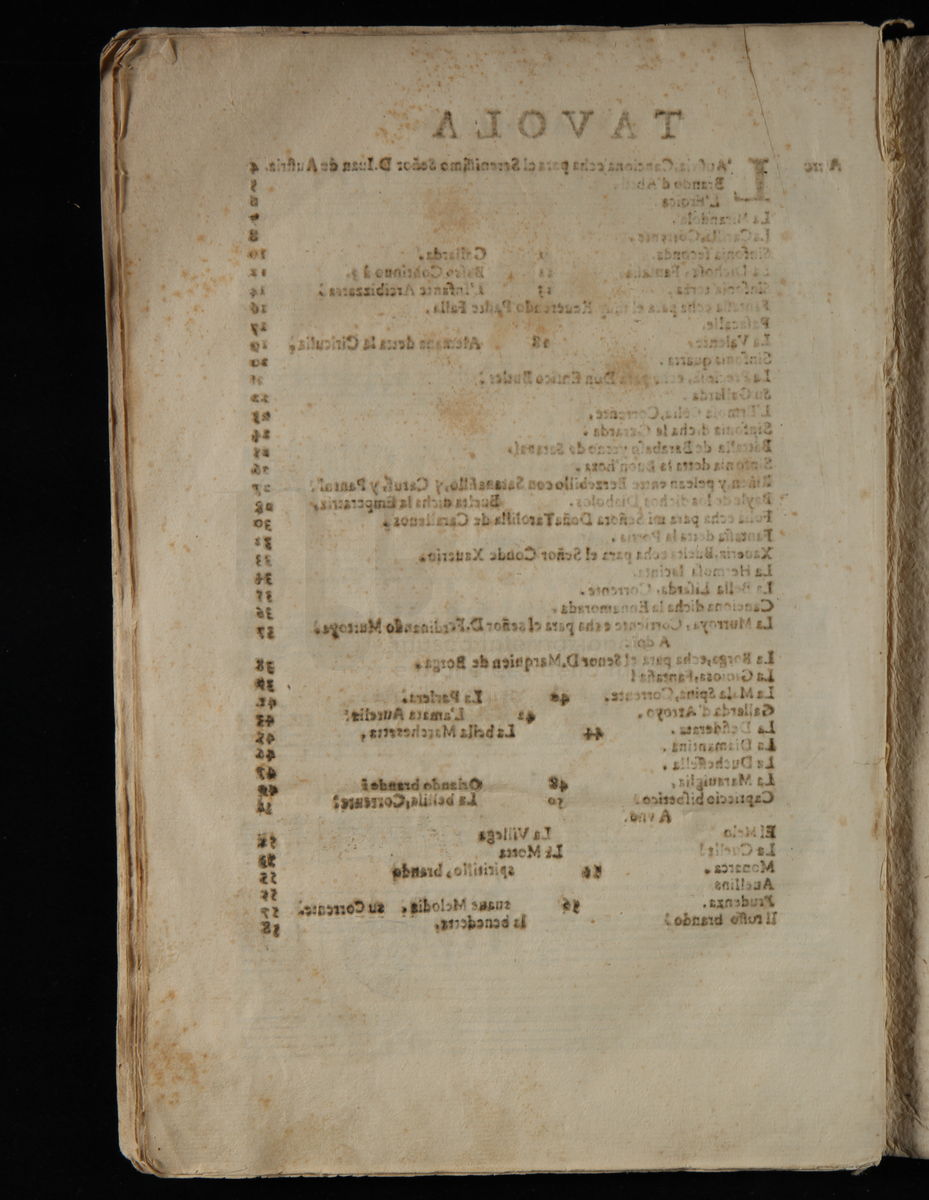 TAVOLA
A tre L'Austria, Canciona echa para el Serenissimo Señor D. Iuan de Austria. 4
Brando d'Abril. 5
L'Eroica. 6
La Mirandola. 7
La Canilla, Corrente. 8
Sinfonia seconda. 11 Gallarda. 10
La Dichosa, Fantasia. 12 Basso Continuo à 3. 12
Sinfonia terza. 13 L'Infante Arcibizzarea. 14
Fantasia echa para el muy Reuerendo Padre Falla. 16
Passacalle. 17
La Valente. 18 Alemana detta la Ciriculla, 19
Sinfonia quarta. 20
Don Enrico Butler. 21
Su Gallarda. 22
Corrente, 23
Sinfonia dicha la Gerarda. 24
Battalla de Barabaso yerno de Satanas. 25
Sinfonia detta la Buon'hora. 26
Riñen y pelean entre Berzebillo con Satanasillo, y Caruf, y Pantul. 27
Bayle de los dichos Diabolos. Burlta dicha la Emperatriz, 28
Folia echa para mi Señora Doña Tarolilla de Carallenos. 30
Fantasia detta la 32
Xaueria. echa para el Señor Conde Xauerio. 33
La Hermosa Iacinta. 34
La Bella Lisarda, Corrente. 35
Canciona dicha la Ennamorada. 36
La Murroya, Corriente echa para el señor D. Ferdinando Murroya. 37
A doi.
La Borga, echa para el Senor D. Marquien de Borga. 38
La Gioiosa, Fantasia 39
La Mala Spina, Corrente. 40 La Parlera. 41
Gallarda d'Arroyo. 42 L'amata Aurelia. 43
La Desiderata. 44 La bella Marchesetta, 45
La Diamantina. 46
La Duchessella. 47
La Marauiglia, 48 Orlando brando 49
Capriccio bisbetico 50 La belilla, Corrente 51
A vno.
El Melo La Villega 52
La Cuella La Morra 53
Monarca. 54 spiritillo, brando 55
Auellina 56
Prudenza. 56 suaue Melodia, su Corrente. 57
Il rosso brando la benedetta, 58